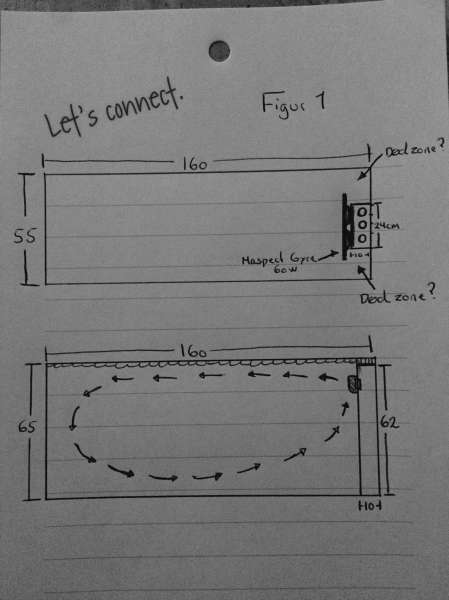 Let's connect.
Figur 1
160
Ded zone?
55
24cm
Maspect Gyre
60W
10
Ded zone?
160
65
62
10